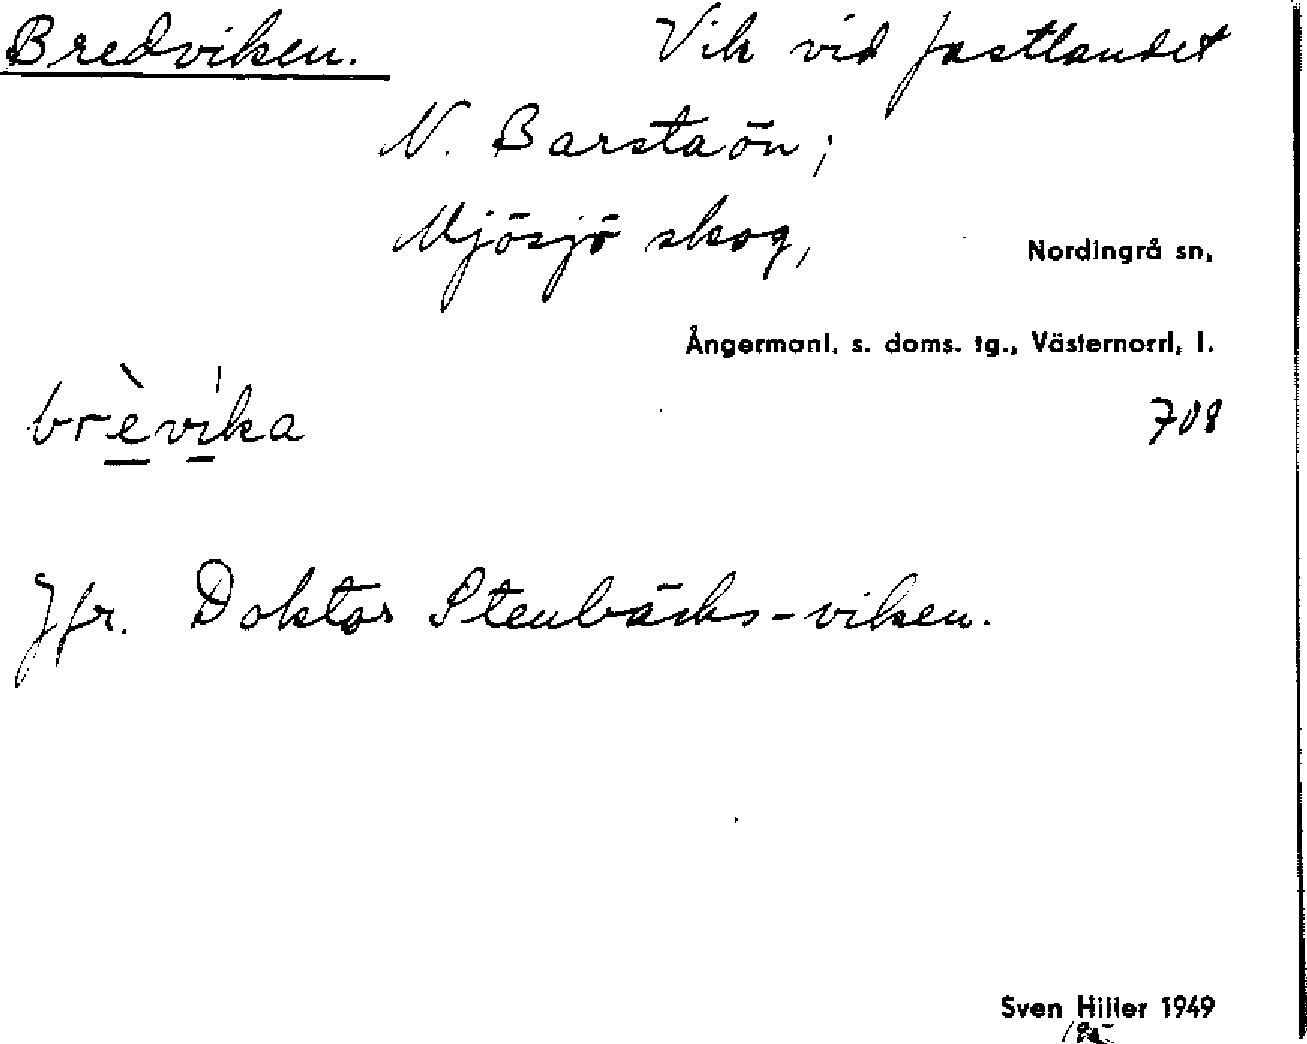 Bredviken. Vik vid fastlandet
N. Barstaön;
Mjösjö skog, Nordingrå sn,
Ångermanl. s. doms. tg., Västernorrl, l.
brèvika 708
Jfr. Doktor Stenbäcks-viken.
Sven Hiller 1949